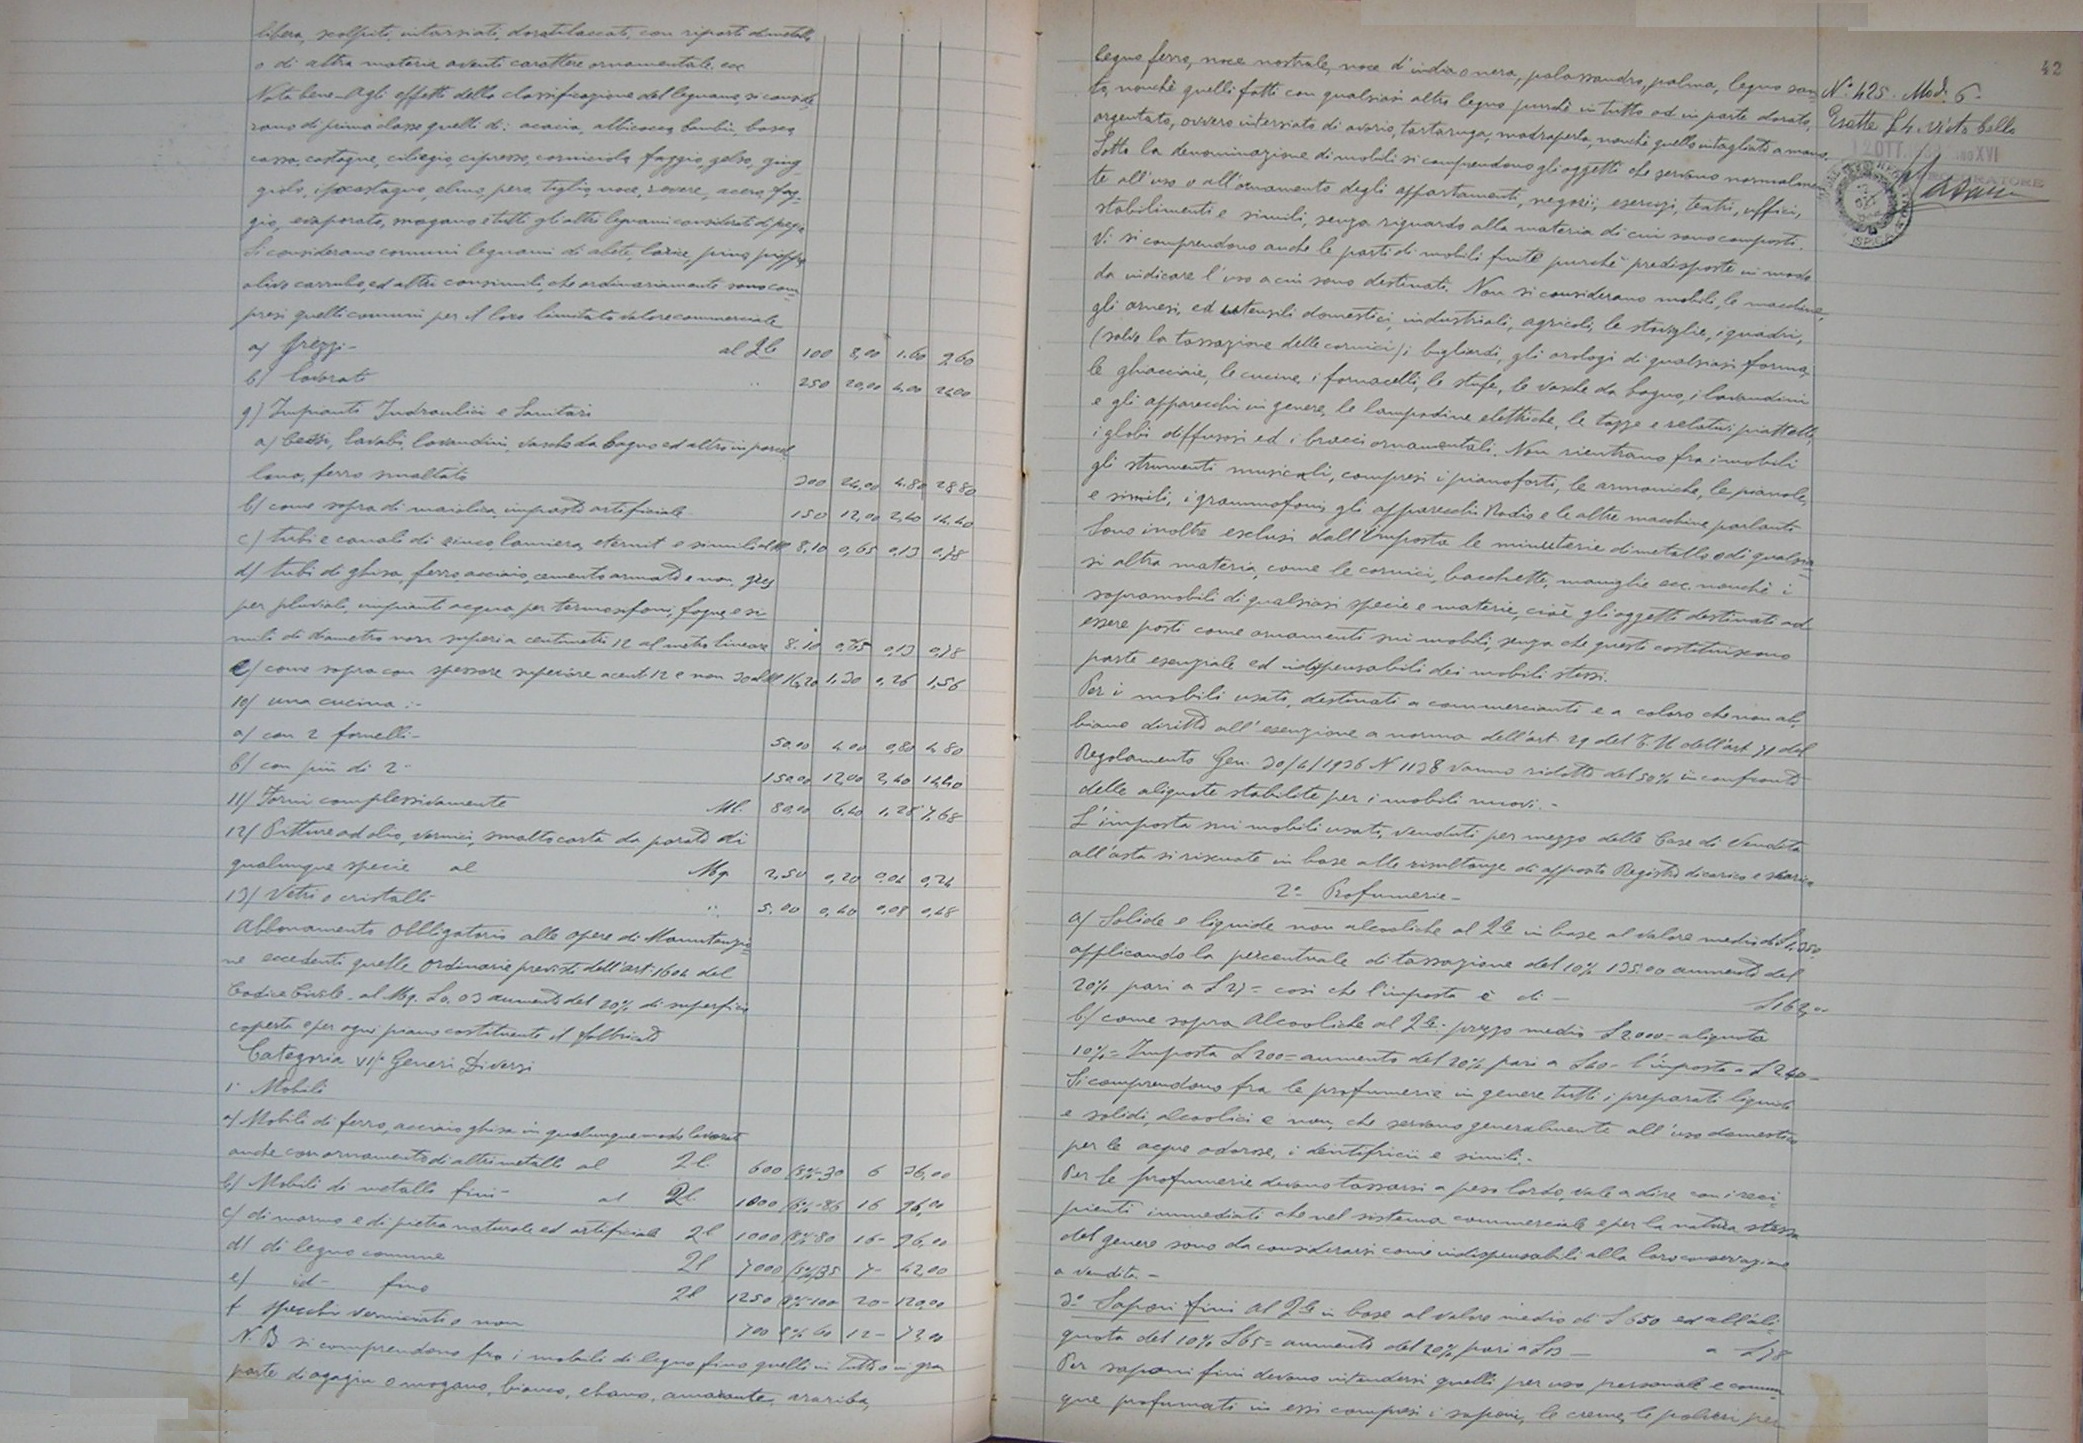 libera, scolpiti, intarsiati, dorati laccati, con riporti di metallo
o di altra materia aventi carattere ornamentale ecc
Nota bene - Agli effetti della classificazione del legname, si conside
rano di prima classe quelli di: acacia, albicocco, bambù, bosco
casso, castagno, ciliegio, cipresso, corniciolo, faggio, gelso, giug
giolo, ipocastagno, olmo, pero, tiglio, noce, rovere, acero, fag-
gio, evaporato, mogano e tutti gli altri legnami considerati di pregio
Si considerano comuni legnami di abete, larice, pino, pioppo
olivo carrubo, ed altri consimili, che ordinariamente sono com-
presi quelli comuni per il loro limitato valore commerciale
a) Grezzi - al Qle 100 8,00 1.60 9,60
b) lavorato " 250 20,00 4,00 24,00
9) Impianti Indraulici e Sanitari
a) Cessi, lavabi, lavandini, vasche da bagno ed altro in porcel
lana, ferro smaltato 300 24,00 4.80 28,80
b) come sopra di maiolica, impasto artificiale 150 12,00 2,40 14,40
c) tubi e canali di zinco, lamiera, eternit e simili al Ml 8,10 0,65 0,13 0,78
d) tubi di ghisa, ferro acciaio, cemento armato e non, gres
per pluviali, impianti acqua per termosifoni, fogne, e si
mili di diametro non superi a centimetri 12 al metro lineare 8.10 0,65 0,13 0,78
e) come sopra con spessore superiore a cent 12 e non 30 al Ml 16,20 1,30 0,26 1,56
10) una cucina :-
a) con 2 fornelli - 50,00 4,00 0,80 4,80
b) con più di 2 - 150,00 12,00 2,40 14,40
11) Forni complessivamente Ml. 80,00 6,40 1,28 7,68
12) Pitture ad olio, vernici, smalto carta da parato di
qualunque specie al Mq. 2,50 0,20 0.04 0,24
13) Vetri o cristalli " 5.00 0,40 0,08 0,48
Abbonamento Obbligatorio alle opere di Manutenzio-
ne eccedenti quelle Ordinarie previste dell'art. 1604 del
Codice Civile - al Mq. L 0,03 aumento del 20% di superficie
coperta e per ogni piano costituente il fabbricato
Categoria VIIª Generi Diversi
1° Mobili
a) Mobili di ferro, acciaio ghisa in qualunque modo lavorati
anche con ornamento di altri metalli al Ql. 600 5% - 30 6 36,00
b) Mobili di metallo fini - al Ql 1000 8% - 80 16 96,00
c) di marmo e di pietra naturale ed artificiale Ql 1000 8% 80 16 - 96,00
d) di legno comune Ql 7000 5% 35 7 - 42,00
e) id - fino Ql 1250 8% - 100 20 - 120,00
f specchi verniciati o non 700 60 12 - 72,00
N.B si comprendono fra i mobili di legno fino quelli in tutto o in gran
parte di agagiu o mogano, bianco, ebano, amarante, arariba,
42
N° 425. Mod. 6 -
Esatte L 4.
12 OTT. XVI
PROCURATORE
ISPICA
legno ferro, noce nostrale, noce d'india o nera, palassandro, palma, legno san-
to, nonchè quelli fatti con qualsiasi altro legno purchè in tutto od in parte dorato,
argentato, ovvero intersiato di avorio, tartaruga, madraperla, nonchè quello intagliato a mano.
Sotto la denominazione di mobili si comprendono gli oggetti che servono normalmen
te all'uso o all'ornamento degli appartamenti, negozii, esercizi, teatri, uffici,
stabilimenti e simili, senza riguardo alla materia di cui sono composti.
Vi si comprendono anche le parti di mobili finite purchè predisposte in modo
da indicare l'uso a cui sono destinati. Non si considerano mobili, le macchine,
gli arnesi, ed utensili domestici, industriali, agricoli, le stoviglie, i quadri,
(salvo la tassazione delle cornici), i bigliardi, gli orologi di qualsiasi forma,
le ghiacciaie, le cucine, i fornacelli, le stufe, le vasche da bagno, i lavandini
e gli apparecchi in genere, le lampadine elettriche, le tazze e relativi piattelli,
i globi diffusori ed i bracci ornamentali. Non rientrano fra i mobili
gli strumenti musicali, compresi i pianoforti, le armoniche, le pianole,
e simili, i grammofoni, gli apparecchi Radio e le altre macchine parlanti
Sono inoltre esclusi dall'imposta le minuterie di metallo o di qualsia-
si altra materia, come le cornici, bacchette, maniglie ecc. nonchè i
sopramobili di qualsiasi specie e materie, cioè gli oggetti destinati ad
essere posti come ornamenti sui mobili, senza che questi costituiscono
parte esenziale ed indispensabili dei mobili stessi.
Per i mobili usati, destinati a commercianti e a coloro che non ab,
biano diritto all'esenzione a norma dell'art. 29 del T.U dell'art 71 del
Regolamento Gen. 30/4/1936 N 1138 vanno ridotti del 50% in confronto
delle aliquote stabilite per i mobili nuovi. -
L'imposta sui mobili usati, venduti per mezzo delle Case di Vendita
all'asta si riscuote in base alle risultanze di apposto Registro di carico e scarico
2° Profumerie -
a) Solide e liquide non alcooliche al Qle in base al valore medio di L 1.350
applicando la percentuale di tassazione del 10% 135.00 aumento del
20% pari a L 27 = così che l'imposta è di - L 162,00
b) come sopra Alcooliche al Qle - prezzo medio L 2000 = aliquota
10% = Imposta L 200 = aumento del 20% pari a L 40 - l'imposta a L 240 -
Si comprendono fra le profumerie in genere tutti i preparati liquidi
e solidi, alcoolici e non, che servono generalmente all'uso domestico
per le acque odorose, i dentifricii e simili. -
Per le profumerie devono tassarsi a peso lordo, vale a dire con i reci
pienti immediati che nel sistema commerciale e per la natura stessa
del genere sono da considerarsi come indispensabili alla loro conservazione
a vendita. -
3° Saponi fini al Qle in base al valore medio di L 650 ed all'ali-
quota del 10% L 65 = aumento del 20% pari a L 13 - a L 78
Per saponi fini devono intendersi quelli per uso personale e comun-
que profumati in essi compresi i saponi, le creme, le polveri per